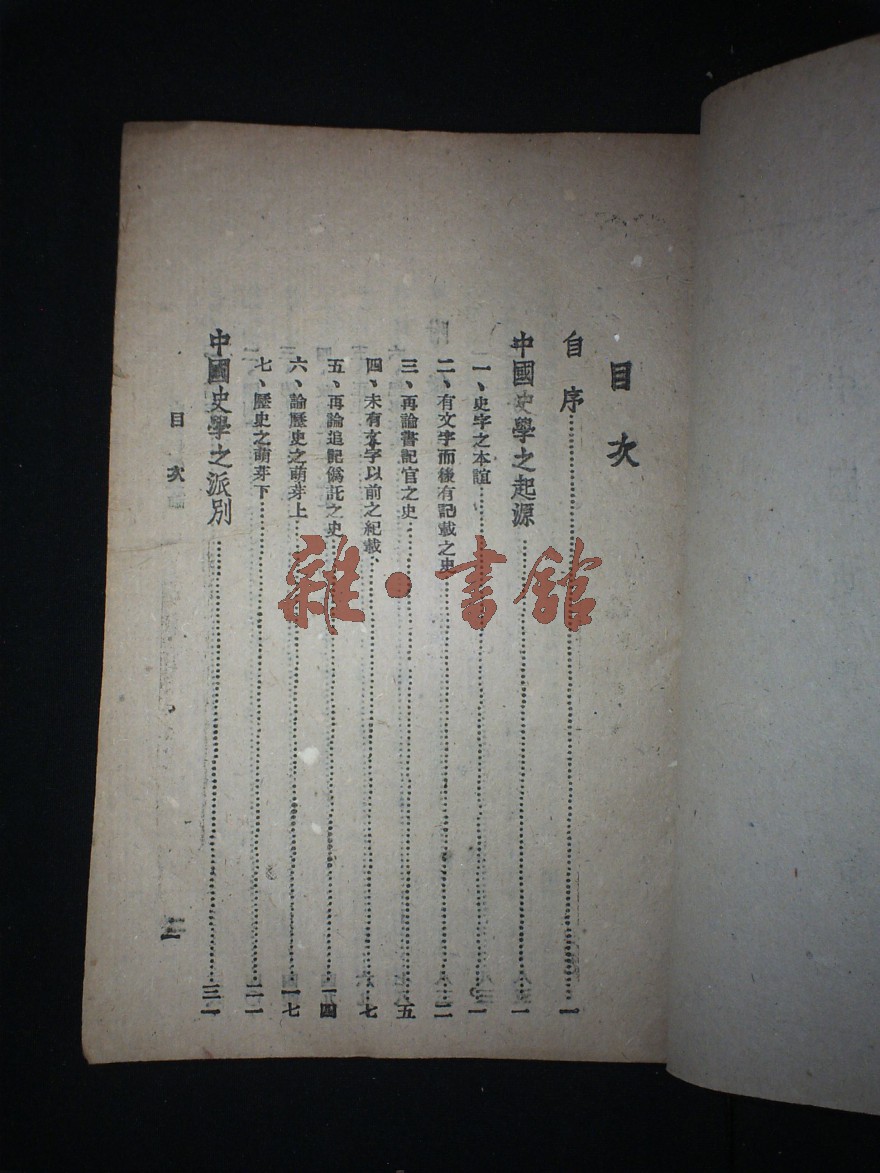 目次
自序……一
中國史學之起源……一
一、史字之本誼……一
二、有文字而後有記載之史……二
三、再論書記官之史……五
四、未有文字以前之紀載、……七
五、再論追記僞託之史……一四
六、論歷史之萌芽上……一七
七、歷史之萌芽下……二一
中國史學之派別……三一
目次
雜·書館